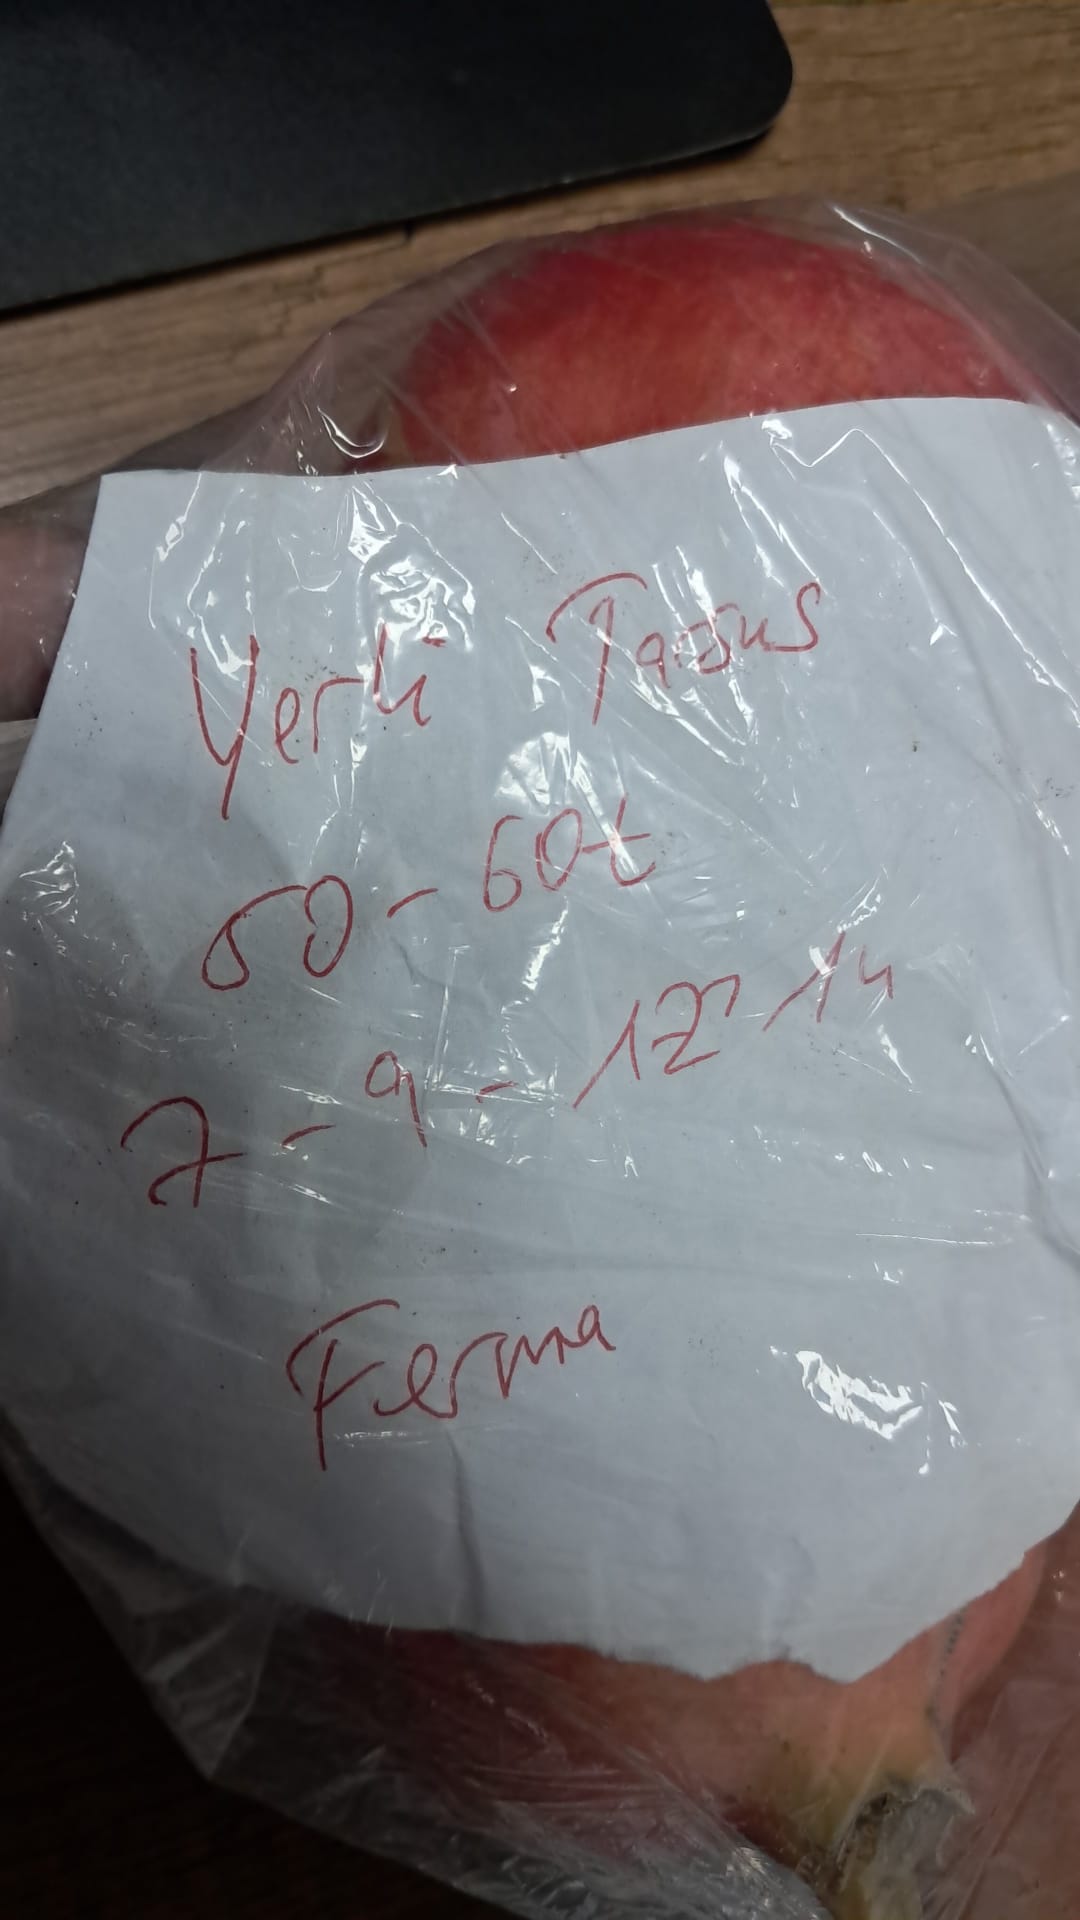 Yerli Tarsus
50-60t
7-9-12-14
Ferma